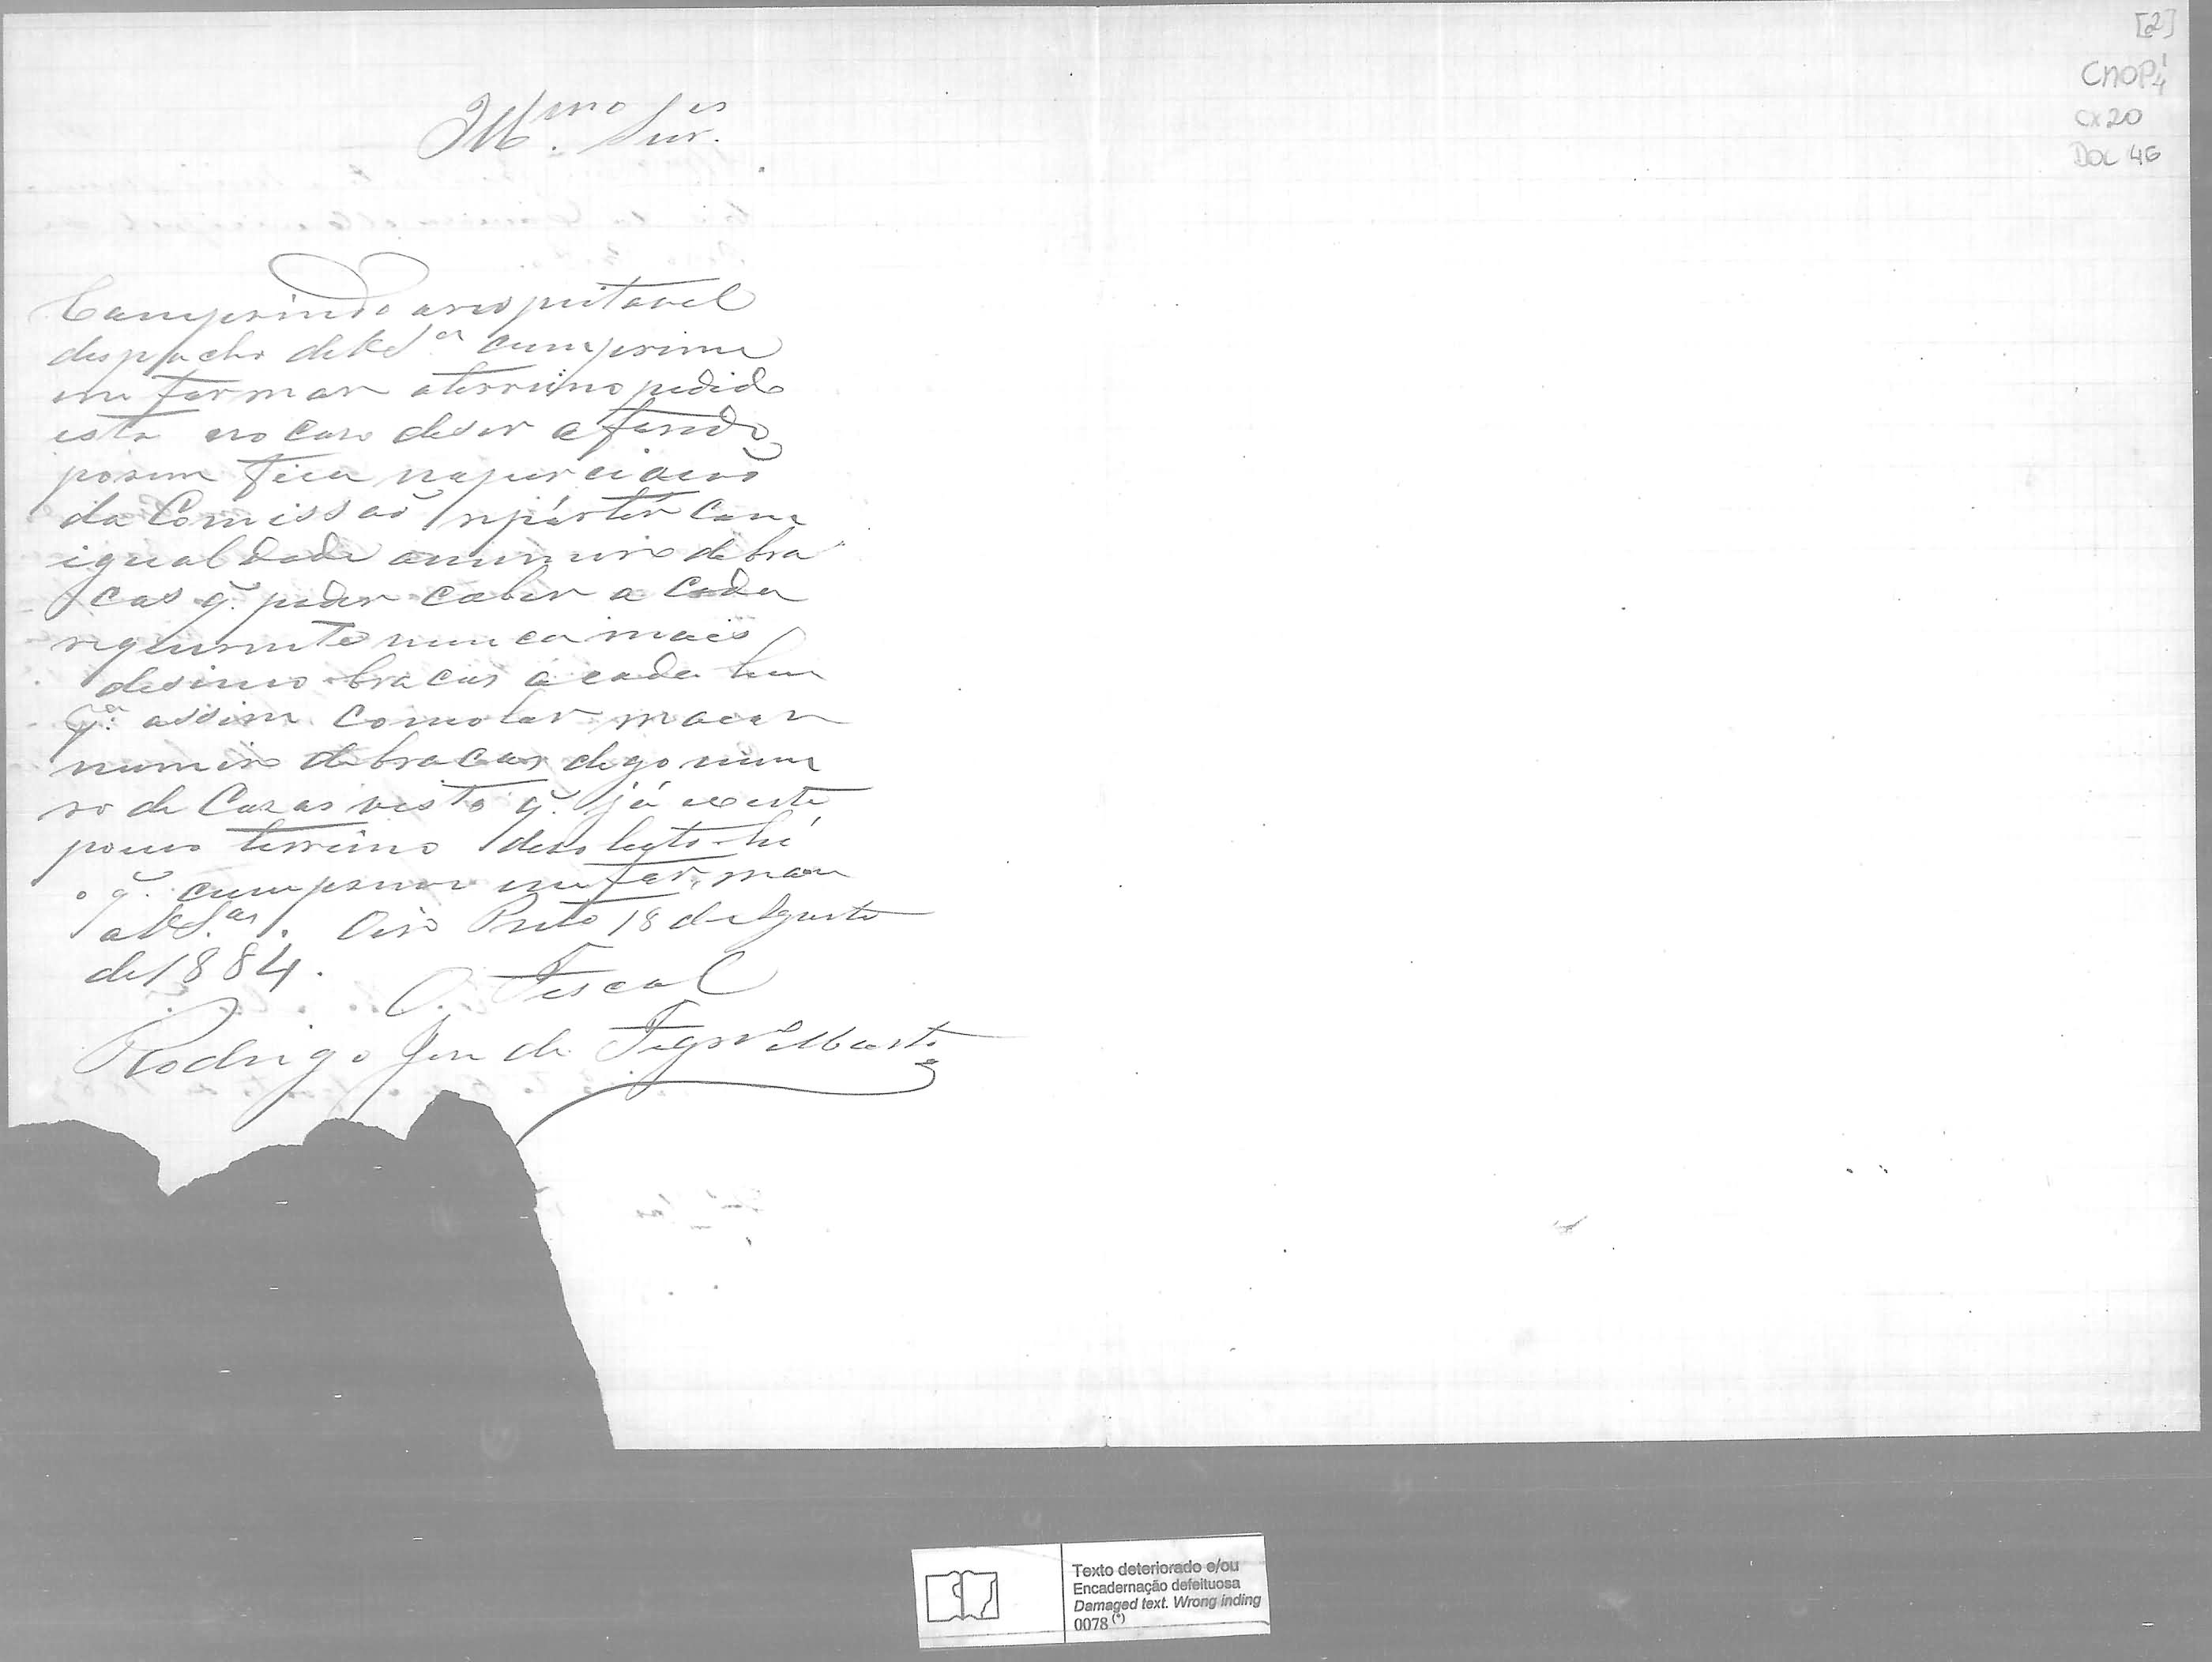 [2]
CMOP 1/4
CX20
DOC 46
Ill.mo Snr.es
Cumprindo arespeitavel
despacho deVS.as cumprime
im formar oterreino pedido
esta no caso deser aforado
porem fica napreciacaõ
da Comissaõ repártir Com
igualdade onumero debra
cas q̃. poder caber a cada
requerente nunca mais
desinco bracas a cada hum
q.m assim comotar marcar
numero debracas digo nume
ro de Cazas visto q̃. já existe
pouco terreino devoluto hé
o q̃. cumprime im formar
aVS.as. Oiro Preto 18 de Agosto
de 1884.
O. Fiscal
Rodrigo José de Figr.do Murta
Texto deteriorado e/ou
Encadernação defeituosa
Damaged text. Wrong inding
0078 (*)